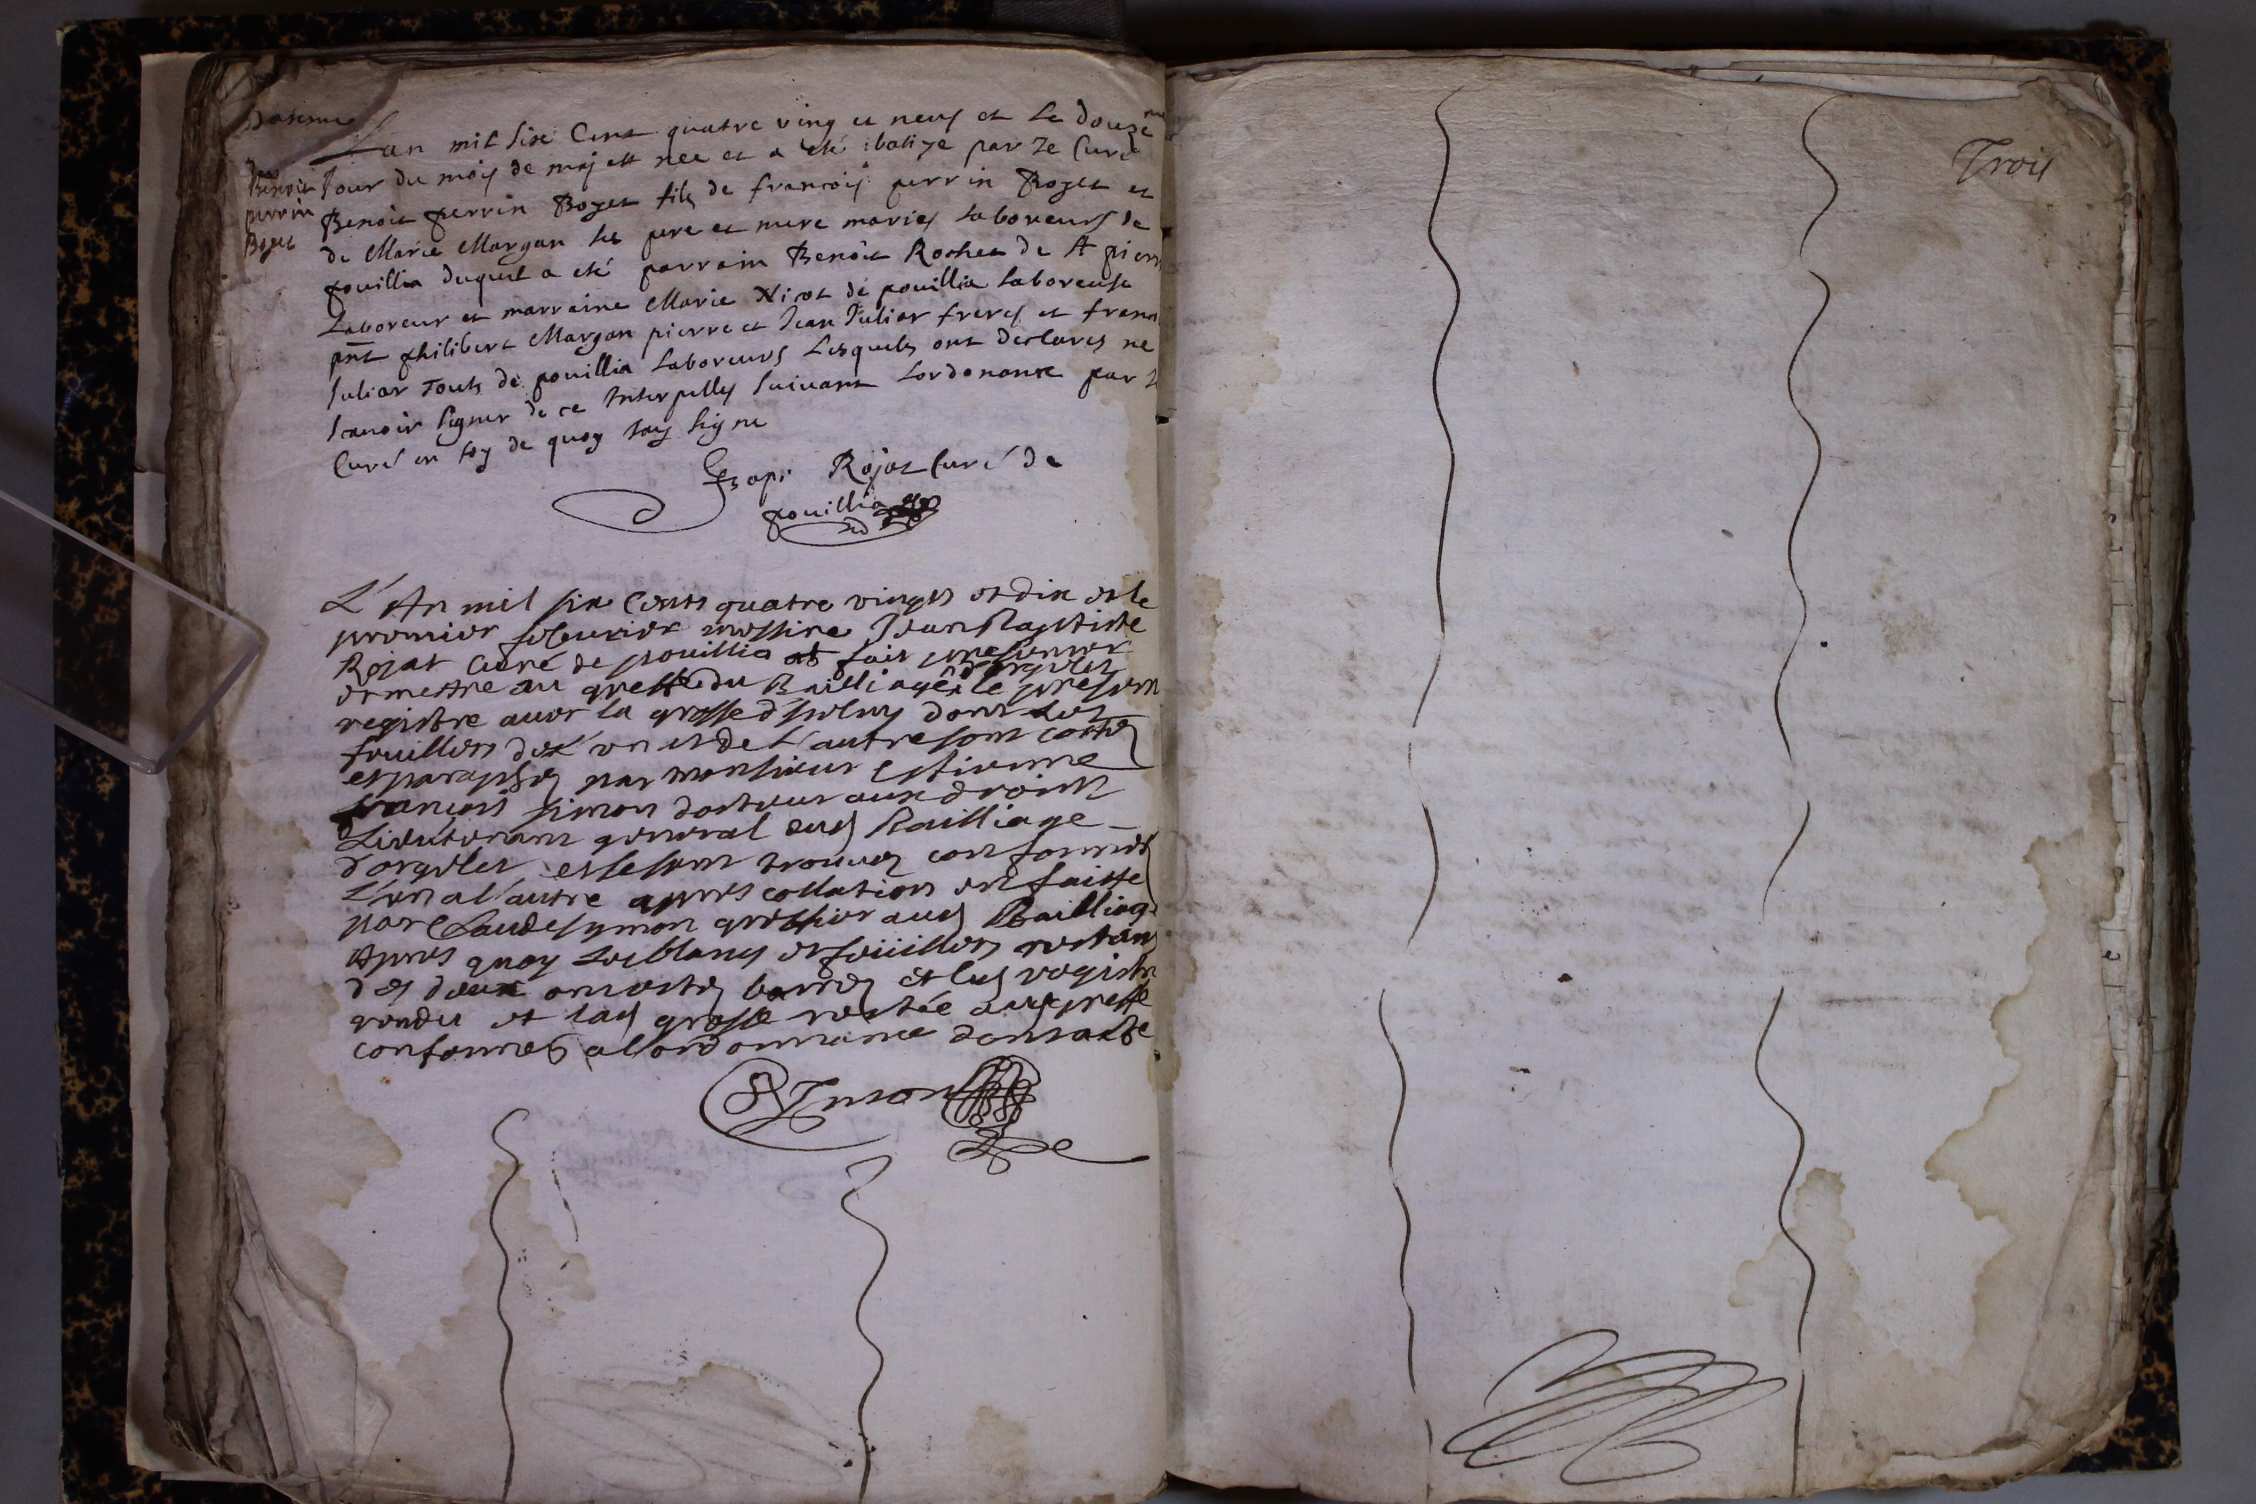 Batesme
de
Benoit
perrin
Boget
Lan mil Sixe Cent quatre ving et neuf et Le douze
Jour du mois de maj est nee et a eté batize par Ze Curé
Benoit perrin Boget fils de francois perrin Boget et
de Marie Margan ses pere et mere maries laboreurs de
pouillia duquel a eté parrain Benoit Rochet de St pierre
Laboreur et marraine Marie Nicot de pouillia Laboreuse
pnt philibert Margan pierre et Jean Juliar freres et
Juliar Touts de pouillia Laboreurs Lesquels ont declares ne
scavoir signer de ce Interpelles suivant Lordonance par
Curé en foy de quoy Jay signe
Rojat Curé de
pouillia
L'An mil six Cents quatre vingts et dix et le
premier febvrier messire Jean Baptiste
Rojat Curé de pouillia at fait presenter
et mettre au greffe du Bailliage d'orgelet le present
registre avec la grosse d'iceluy dont les
feuillets de L'un et de L'autre sont cottés
et paraphés par monsieur Estienne
francois simon docteur aux droits
Lieutenant general aud Bailliage
d'orgelet et se sont trouvez conformes
L'un a l'autre apres collation en faitte
par Claude symon greffier aud Bailliage
Apres quoy Les blancs et feüillets restans
des deux ont estés barrés et led registre
rendu et lad grosse restée aud greffe
conformes a l'ordonnance dont acte
Symon
Trois